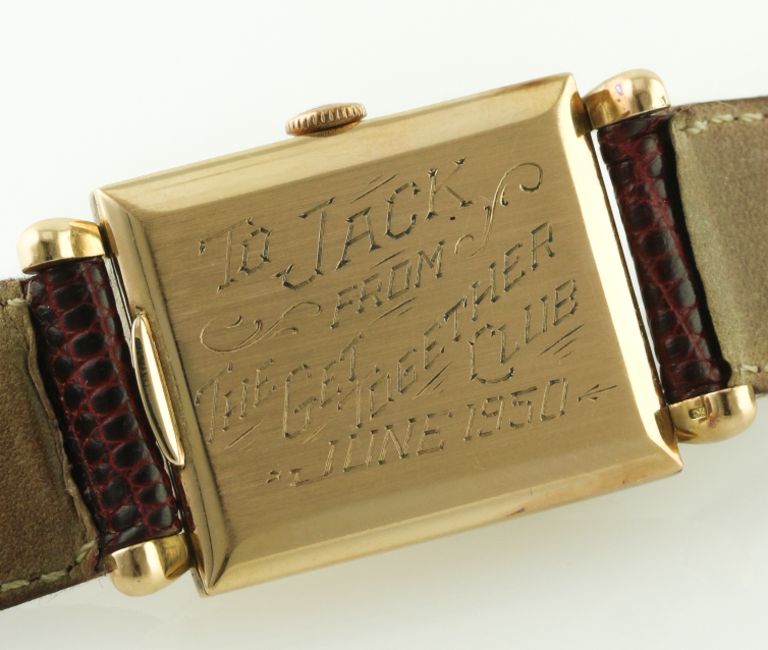 To JACK
FROM
THE GET TOGETHER CLUB
JUNE 1950